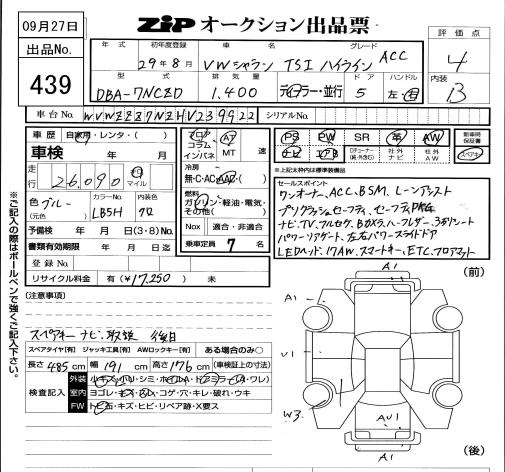 09月27日
ZIP オークション出品票
評価点
4
出品No.
439
年式 初年度登録 車名 グレード
29年8月 VWシャラン TSI ハイライン ACC
型式 排気量 ドア ハンドル
DBA-7NCZD 1,400 ディーラー・並行 5 左・右
内装
B
車台No.
シリアルNo.
車歴 自家用・レンタ・( )
車検 年 月
走行 26,090 km マイル
色 ブルー (元色)
カラーNo. LB5H
内装色 クロ
予備検 年 月 日 (3・8) No.
書類有効期限 年 月 日迄
登録No.
リサイクル料金 有 (¥17,250) 未
フロア コラム インパネ
AT MT 速
冷房
無・C・AC・AAC・( )
燃料
ガソリン・軽油・電気・その他( )
Nox 適合・非適合
乗車定員 7 名
PS PW SR 革 AW
ナビ エアB 社外ナビ 社外AW
新車時保証書
スペアキー
*上記太枠内は標準装備品
セールスポイント
ワンオーナー、ACC、BSM、レーンアシスト
プリクラッシュセーフティ、セーフティPKG
ナビ、TV、フルセグ、Bカメラ、ハーフレザー、3列シート
パワーリアゲート、左右パワースライドドア
LEDヘッド、17AW、スマートキー、ETC、フロアマット
※ご記入の際はボールペンで強くご記入下さい。
(注意事項)
スペアキー ナビ、取説 後日
スペアタイヤ[有] ジャッキ工具[有] AWロックキー[有] ある場合のみ○
長さ 485 cm 幅 191 cm 高さ 176 cm (車検証上の寸法)
検査記入
外装 小キズ・小ハリ・シミ・ホイルA・ドアミラー(A・ワレ)
室内 ヨゴレ・キズ・スレ・コゲ・穴・キレ・破れ・ウキ
FW トビ石・キズ・ヒビ・リペア跡・X要ス
(前)
A1
A1
A1
U1
W3
AU1
A1
(後)